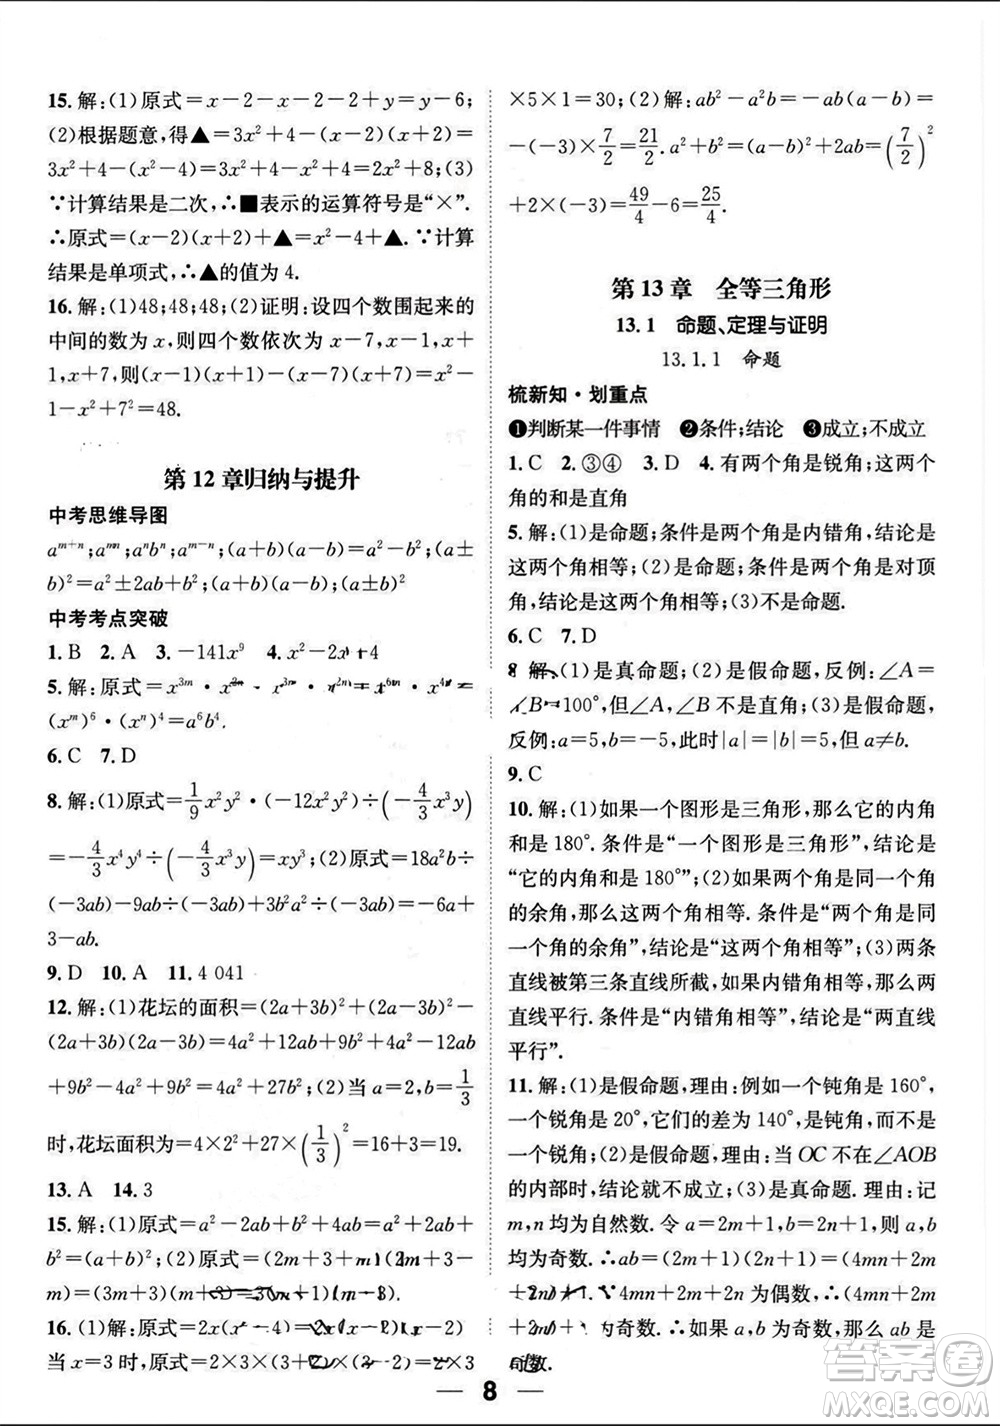 15. 解:(1)原式=x-2-x-2-2+y=y-6;
(2)根据题意,得▲=3x²+4-(x-2)(x+2)=
3x²+4-(x²-4)=3x²+4-x²+4=2x²+8;(3)
∵计算结果是二次,∴■表示的运算符号是“×”.
∴原式=(x-2)(x+2)+▲=x²-4+▲.∵计算
结果是单项式,∴▲的值为 4.
16. 解:(1)48;48;48;(2)证明:设四个数围起来的
中间的数为 x,则四个数依次为 x-7,x-1,x+
1,x+7,则(x-1)(x+1)-(x-7)(x+7)=x²-
1-x²+7²=48.
第 12 章归纳与提升
中考思维导图
a^{m+n};a^{mn};aⁿbⁿ;a^{m-n};(a+b)(a-b)=a²-b²;(a±
b)²=a²±2ab+b²;(a+b)(a-b);(a±b)²
中考考点突破
1. B 2. A 3. -141x⁹ 4. x²-2x+4
5. 解:原式=x^{3m}·x^{2n}-x^{3m}·x^{2n}+x^{6m}·x^{4n}=
(x^m)⁶·(xⁿ)⁴=a⁶b⁴.
6. C 7. D
8. 解:(1)原式=1/9x²y²·(-12x²y²)÷(-4/3x³y)
=-4/3x⁴y⁴÷(-4/3x³y)=xy³;(2)原式=18a²b÷
(-3ab)-9ab÷(-3ab)+3b²a²÷(-3ab)=-6a+
3-ab.
9. D 10. A 11. 4 041
12. 解:(1)花坛的面积=(2a+3b)²+(2a-3b)²-
(2a+3b)(2a-3b)=4a²+12ab+9b²+4a²-12ab
+9b²-4a²+9b²=4a²+27b²;(2)当 a=2,b=1/3
时,花坛面积为=4×2²+27×(1/3)²=16+3=19.
13. A 14. 3
15. 解:(1)原式=a²-2ab+b²+4ab=a²+2ab+
b²=(a+b)²;(2)原式=(2m+3+m)(2m+3-
m)=(3m+3)(m+3)=3(m+1)(m+3).
16. (1)解:原式=2x(x²-4)=2x(x+2)(x-2)
当 x=3 时,原式=2×3×(3+2)×(3-2)=2×3
×5×1=30;(2)解:ab²-a²b=-ab(a-b)=
-(-3)×7/2=21/2. a²+b²=(a-b)²+2ab=(7/2)²
+2×(-3)=49/4-6=25/4.
第 13 章 全等三角形
13.1 命题、定理与证明
13.1.1 命题
梳新知·划重点
❶判断某一件事情 ❷条件;结论 ❸成立;不成立
1. C 2. ③④ 3. D 4. 有两个角是锐角;这两个
角的和是直角
5. 解:(1)是命题;条件是两个角是内错角,结论是
这两个角相等;(2)是命题;条件是两个角是对顶
角,结论是这两个角相等;(3)不是命题.
6. C 7. D
8. 解:(1)是真命题;(2)是假命题,反例:∠A=
∠B=100°,但∠A,∠B 不是对顶角;(3)是假命题,
反例:a=5,b=-5,此时|a|=|b|=5,但 a≠b.
9. C
10. 解:(1)如果一个图形是三角形,那么它的内角
和是 180°. 条件是“一个图形是三角形”,结论是
“它的内角和是 180°”;(2)如果两个角是同一个角
的余角,那么这两个角相等. 条件是“两个角是同
一个角的余角”,结论是“这两个角相等”;(3)两条
直线被第三条直线所截,如果内错角相等,那么两
直线平行. 条件是“内错角相等”,结论是“两直线
平行”.
11. 解:(1)是假命题,理由:例如一个钝角是 160°,
一个锐角是 20°,它们的差为 140°,是钝角,而不是
一个锐角;(2)是假命题,理由:当 OC 不在∠AOB
的内部时,结论就不成立;(3)是真命题. 理由:记
m,n 均为自然数. 令 a=2m+1,b=2n+1,则 a,b
均为奇数. ∴ab=(2m+1)(2n+1)=(4mn+2m+
2n)+1.∵4mn+2m+2n 为偶数,∴(4mn+2m
为奇数.∴如果 a,b 为奇数,那么 ab 是
奇数.
8
答案圈
MXQE.COM